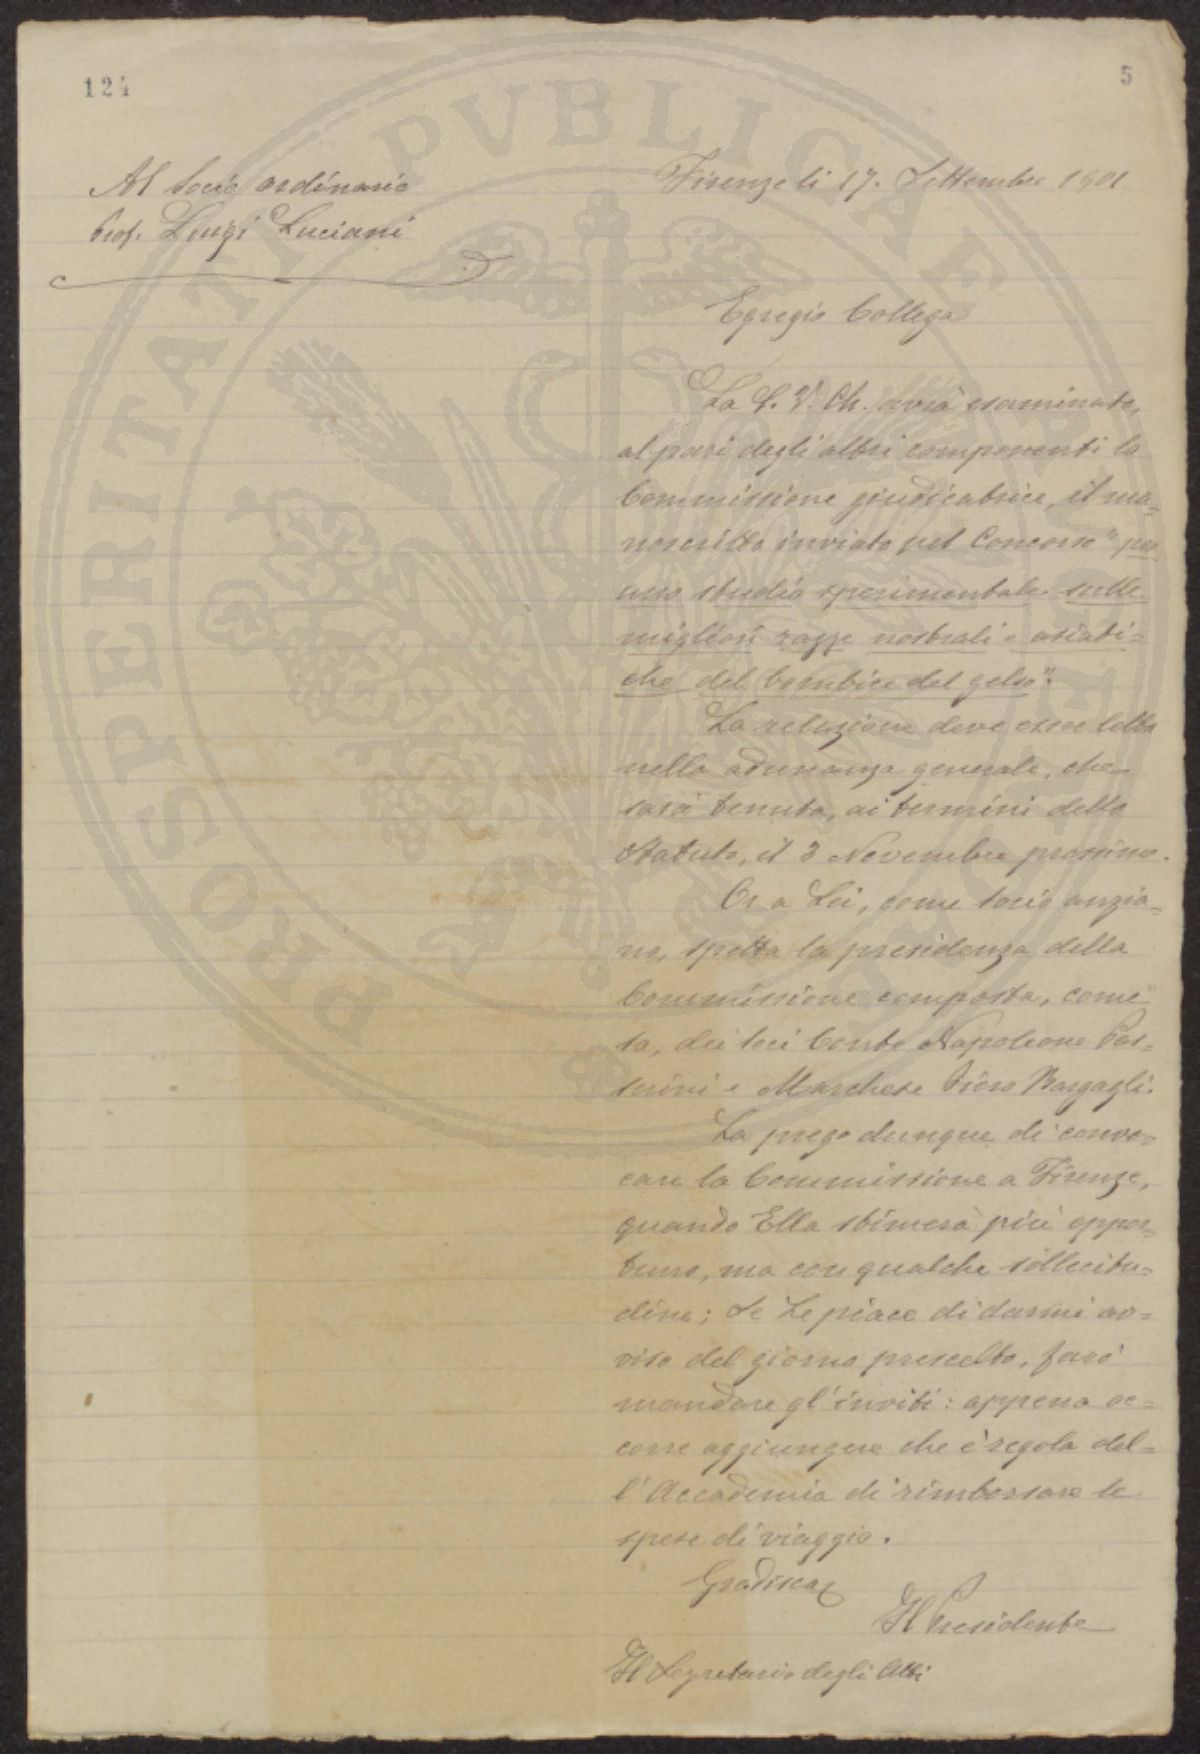 124
5
Al Socio ordinario
Prof. Luigi Luciani
Firenze li 17. Settembre 1901
Egregio Collega
La S. V. Ch. avrà esaminato,
al pari degli altri componenti la
Commissione giudicatrice, il ma-
noscritto inviato pel Concorso "per
uno studio sperimentale sulle
migliori razze nostrali e asiati=
che del bombice del gelso".
La relazione deve esser letta
nella adunanza generale, che
sarà tenuta, ai termini dello
Statuto, il 3 Novembre prossimo.
Or a Lei, come socio anzia=
no, spetta la presidenza della
Commissione composta, come
sa, dei soci Conte Napoleone Pas=
serini e Marchese Piero Bargagli.
La prego dunque di convo=
care la Commissione a Firenze,
quando Ella stimerà più oppor=
tuno, ma con qualche sollecitu=
dine; Se Le piace di darmi av=
viso del giorno prescelto, farò
mandare gl'inviti: appena oc=
corre aggiungere che è regola del=
l'Accademia di rimborsare le
spese di viaggio.
Gradisca
Il Presidente
Il Segretario degli Atti
PROSPERITATI PVBLICAE